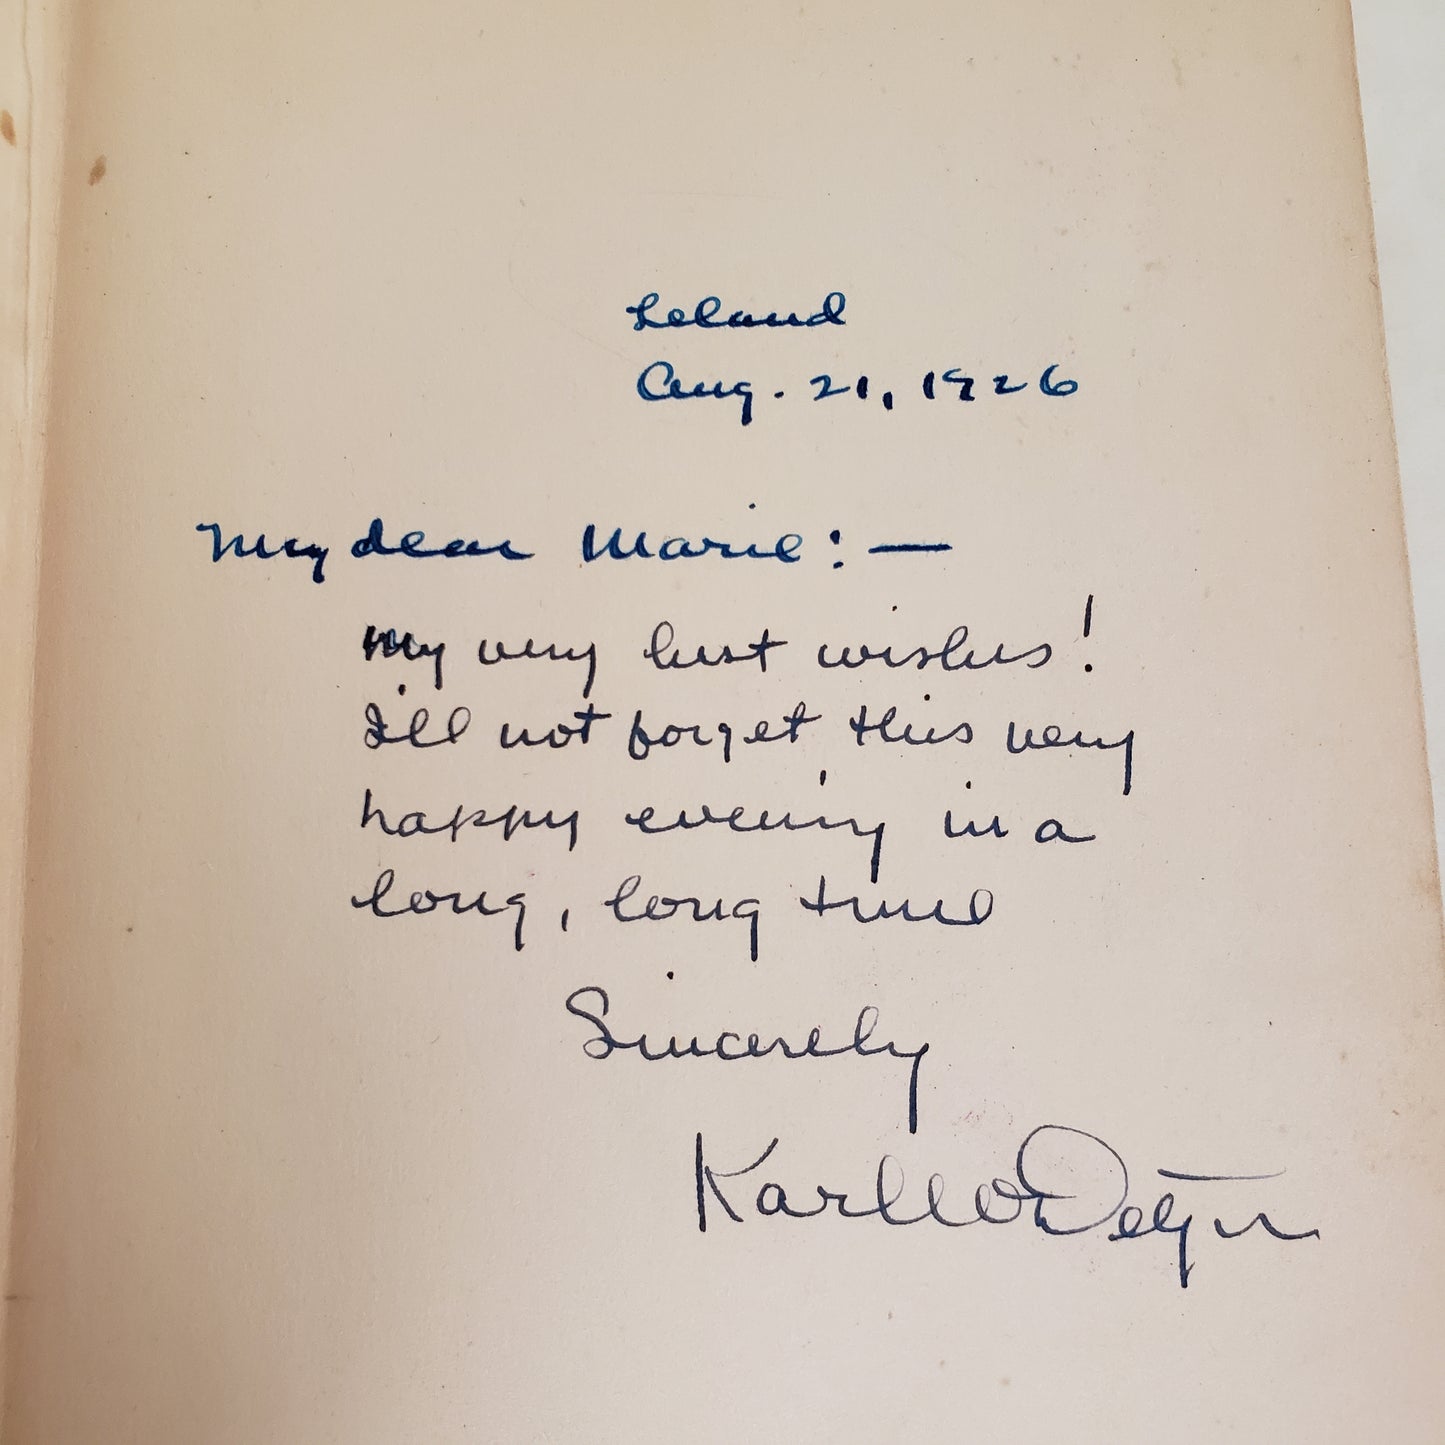 Leland
Aug. 21, 1926
My dear Marie:—
My very best wishes!
I'll not forget this very
happy evening in a
long, long time
Sincerely
Karl W Detzer